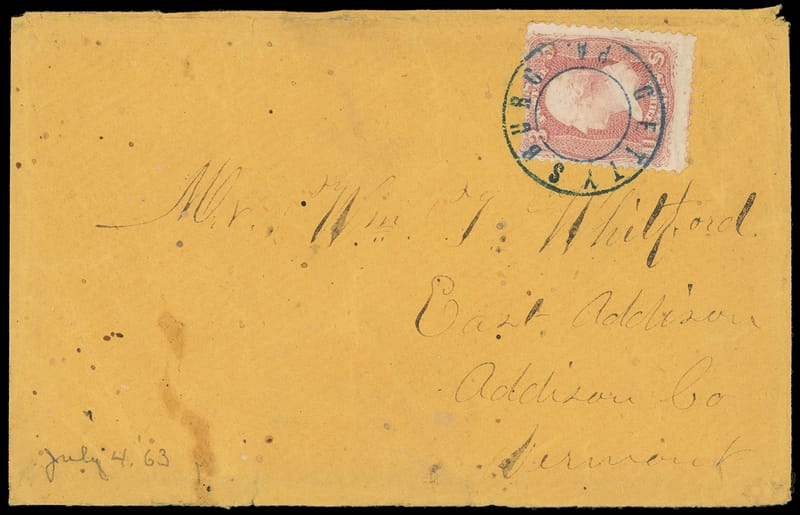 GETTYSBURG PA.
Mr. Wm. T. Whitford.
East Addison
Addison Co
Vermont
July 4. '63